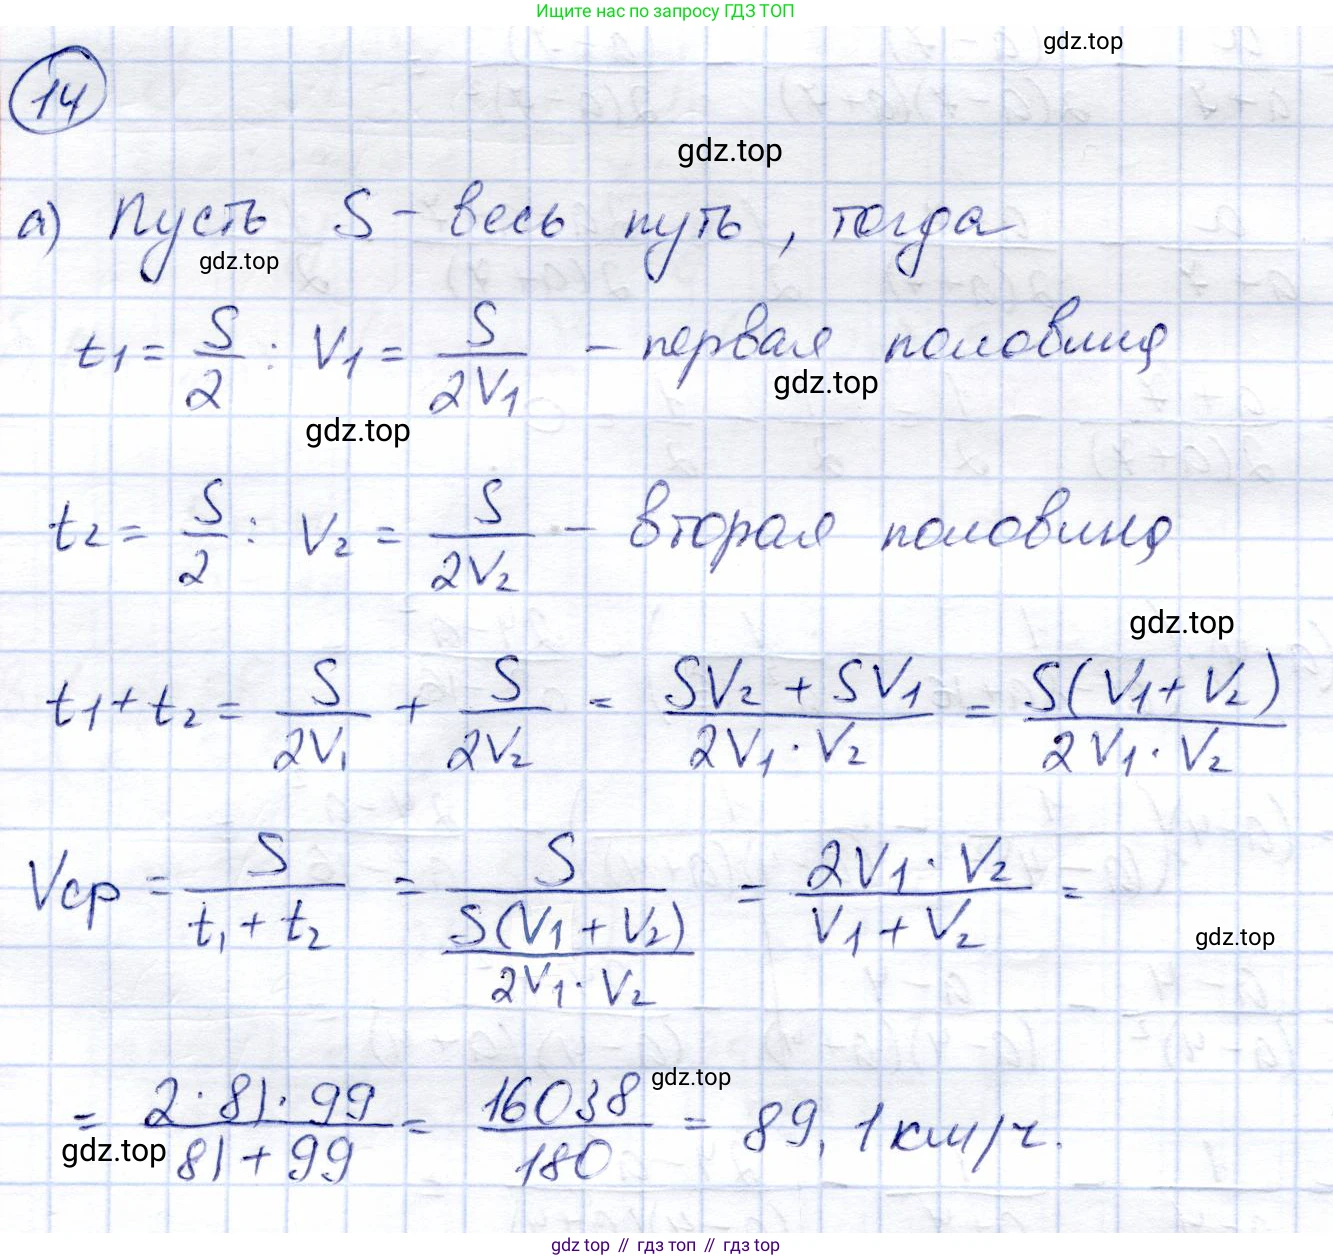 Ищите нас по запросу ГДЗ ТОП
gdz.top
14
gdz.top
а) Пусть S – весь путь, тогда
gdz.top
t₁ = S/2 : V₁ = S/2V₁ – первая половина
gdz.top
gdz.top
t₂ = S/2 : V₂ = S/2V₂ – вторая половина
gdz.top
t₁ + t₂ = S/2V₁ + S/2V₂ = (SV₂ + SV₁)/(2V₁ · V₂) = S(V₁ + V₂)/(2V₁ · V₂)
Vср = S/(t₁ + t₂) = S/(S(V₁ + V₂)/(2V₁ · V₂)) = (2V₁ · V₂)/(V₁ + V₂) =
gdz.top
gdz.top
= (2 · 81 · 99)/(81 + 99) = 16038/180 = 89,1 км/ч.
gdz.top
gdz top // гдз топ // гдз top